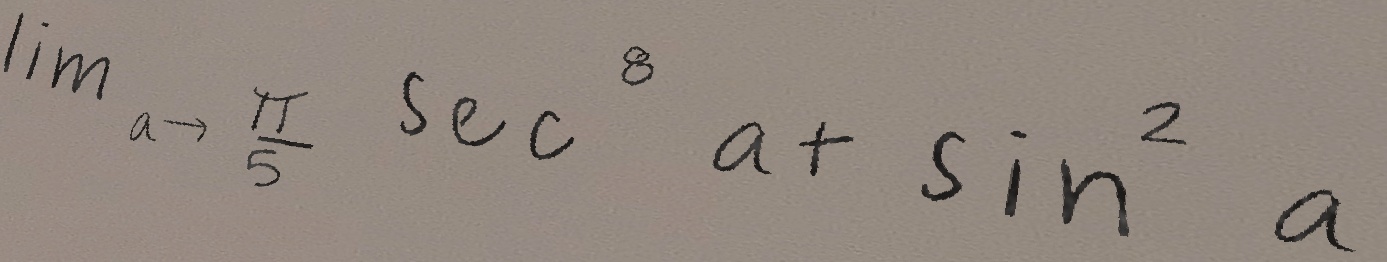 lim a→ π/5 sec^8 a + sin^2 a